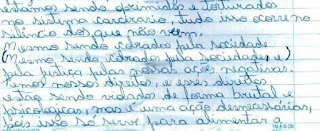 estamos sendo oprimidos e torturados
no sistema carcerario, tudo isso ocorre no
silêncio dos que não vem.
(Mesmo sendo cobrados pela sociedade
(Mesmo sendo cobrados pela sociedade, e)
pela justiça pelas nossas ação negativas.
temos nossos direitos, e esses direitos
estão sendo negados de forma brutal e
psicologicas, mas é uma ação desnecessárias,
pois isso só serve para alimentar a